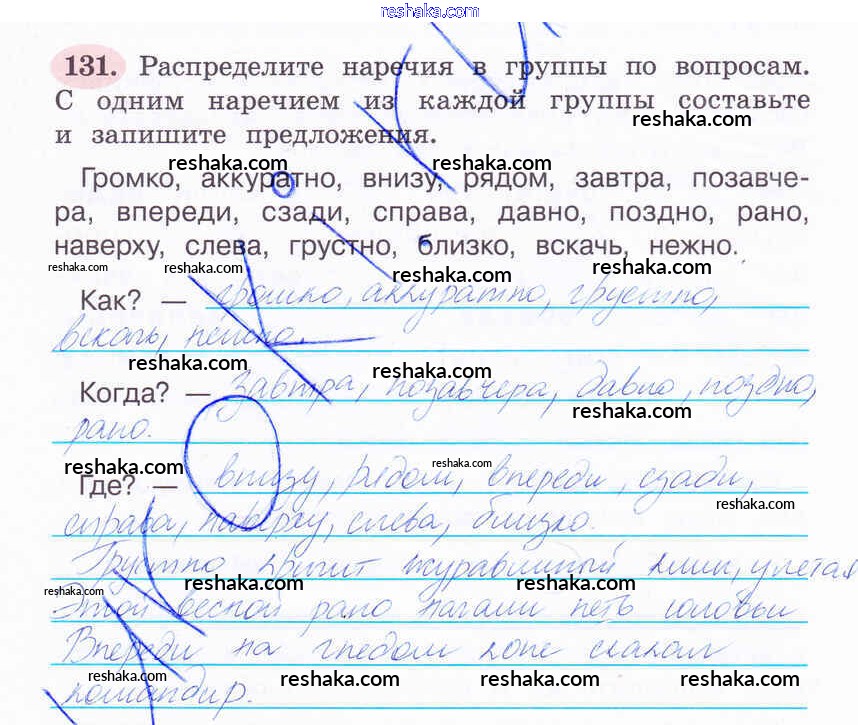 reshaka.com
131. Распределите наречия в группы по вопросам.
С одним наречием из каждой группы составьте
reshaka.com
и запишите предложения.
reshaka.com reshaka.com
Громко, аккуратно, внизу, рядом, завтра, позавче-
ра, впереди, сзади, справа, давно, поздно, рано,
наверху, слева, грустно, близко, вскачь, нежно.
reshaka.com reshaka.com reshaka.com reshaka.com
Как? — громко, аккуратно, грустно,
reshaka.com reshaka.com
вскачь, нежно.
reshaka.com reshaka.com
Когда? — завтра, позавчера, давно, поздно,
reshaka.com
рано.
reshaka.com reshaka.com
Где? — внизу, рядом, впереди, сзади,
reshaka.com
справа, наверху, слева, близко.
Грустно кричит журавлиный клин, улетая
reshaka.com reshaka.com reshaka.com
Этой весной рано начали петь соловьи
Впереди на гнедом коне скакал
reshaka.com reshaka.com reshaka.com reshaka.com
командир.